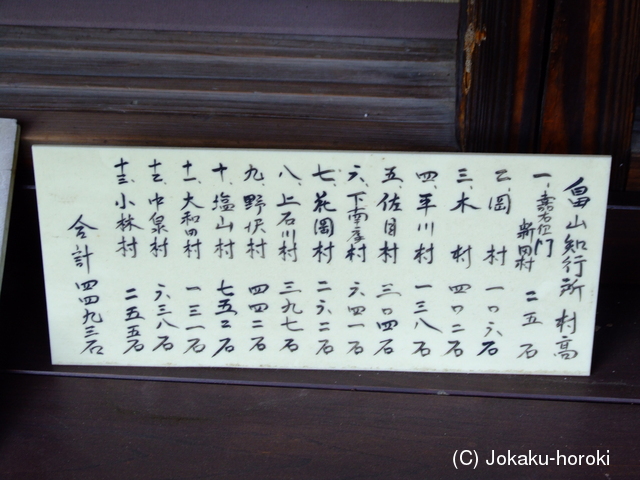 畠山知行所 村高
一、嘉右衛門新田村 二五石
二、岡村 一〇六石
三、木村 四〇二石
四、平川村 一三八石
五、佐目村 三〇四石
六、下南摩村 六四一石
七、花岡村 二六二石
八、上石川村 三九七石
九、野沢村 四四二石
十、塩山村 七五二石
十一、大和田村 一三一石
十二、中泉村 六三八石
十三、小林村 二五五石
合計 四四九三石
(C) Jokaku-horoki